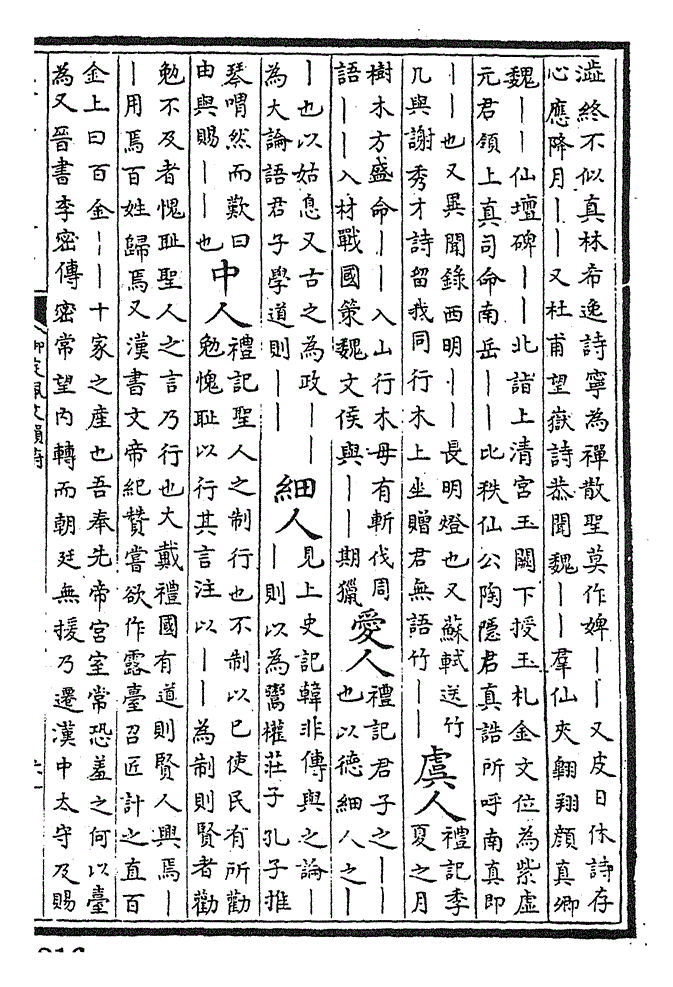 澁終不似真林希逸詩寧為禪散聖莫作婢――又皮日休詩存
心應降月――又杜甫望嶽詩恭聞魏――羣仙夾翺翔顔真卿
魏――仙壇碑――北詣上清宮玉闕下授玉札金文位為紫虛
元君領上真司命南岳――比秩仙公陶隱君真誥所呼南真即
――也又異聞錄西明――長明燈也又蘇軾送竹
几與謝秀才詩留我同行木上坐贈君無語竹――
虞人
禮記季
夏之月
樹木方盛命――入山行木毋有斬伐周
語――入材戰國策魏文侯與――期獵
愛人
禮記君子之――
也以德細人之―
―也以姑息又古之為政――
為大論語君子學道則――
細人
見上史記韓非傳與之論―
―則以為鬻權莊子孔子推
琴喟然而歎曰
由與賜――也
中人
禮記聖人之制行也不制以已使民有所勸
勉愧耻以行其言注以――為制則賢者勸
勉不及者愧耻聖人之言乃行也大戴禮國有道則賢人興焉―
―用焉百姓歸焉又漢書文帝紀贊嘗欲作露臺召匠計之直百
金上曰百金――十家之產也吾奉先帝宮室常恐羞之何以臺
為又晉書李密傳密常望內轉而朝廷無援乃遷漢中太守及賜